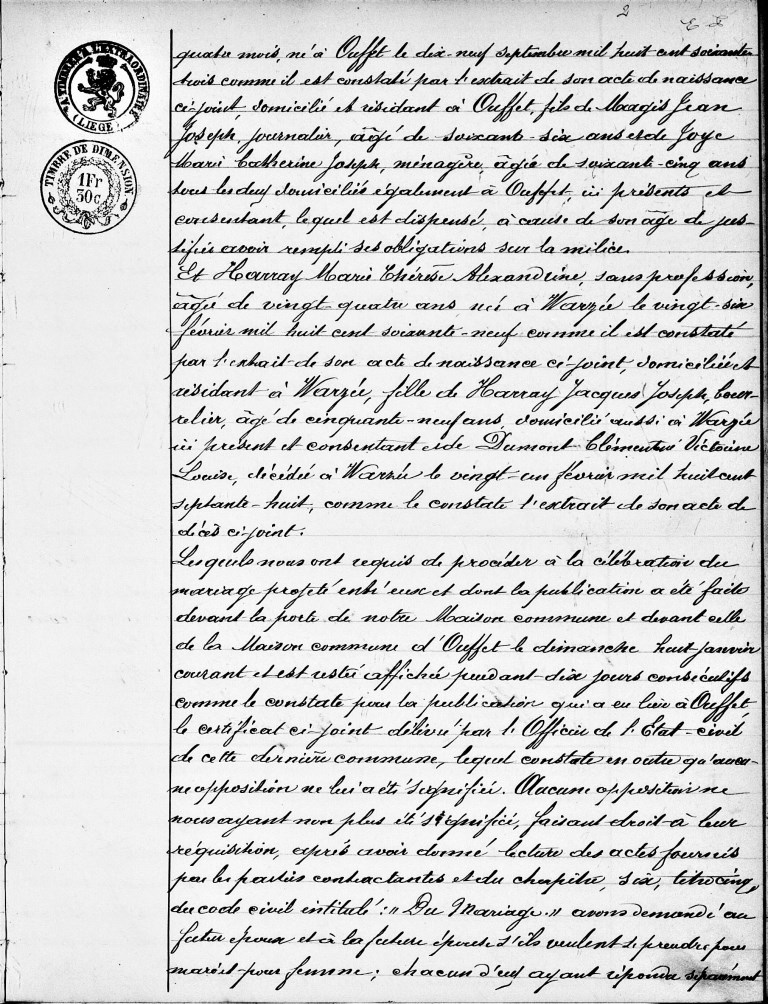 2
TIMBRE A L'EXTRAORDINAIRE
(LIEGE)
TIMBRE DE DIMENSION
1Fr
30c
quatre mois, né à Ouffet le dix-neuf septembre mil huit cent soixante
trois comme il est constaté par l'extrait de son acte de naissance
ci-joint, domicilié et résidant à Ouffet, fils de Magis Jean
Joseph, journalier, âgé de soixante-six ans et de Joye
Marie Catherine Joseph, ménagère, âgée de soixante-cinq ans
tous les deux domiciliés également à Ouffet, ici présents et
consentant, lequel est dispensé, à cause de son âge de jus-
tifier avoir rempli ses obligations sur la milice.
Et Harray Marie Thérèse Alexandrine, sans profession,
âgée de vingt-quatre ans née à Warzée le vingt-six
février mil huit cent soixante-neuf comme il est constaté
par l'extrait de son acte de naissance ci-joint, domiciliée et
résidant à Warzée, fille de Harray Jacques Joseph, bour-
relier, âgé de cinquante-neuf ans, domicilié aussi à Warzée
ici présent et consentant et de Dumont Clémentine Victoire
Louise, décédée à Warzée le vingt-un février mil huit cent
septante-huit, comme le constate l'extrait de son acte de
décès ci-joint.
Lesquels nous ont requis de procéder à la célébration du
mariage projeté entr'eux et dont la publication a été faite
devant la porte de notre Maison commune et devant celle
de la Maison commune d'Ouffet le dimanche huit janvier
courant et est restée affichée pendant dix jours consécutifs
comme le constate pour la publication qui a eu lieu à Ouffet
le certificat ci-joint délivré par l'Officier de l'Etat-civil
de cette dernière commune, lequel constate en outre qu'aucu-
ne opposition ne lui a été signifiée. Aucune opposition ne
nous ayant non plus été signifiée, faisant droit à leur
réquisition, après avoir donné lecture des actes fournis
par les parties contractantes et du chapitre, six, titre cinq,
du code civil intitulé: "Du Mariage" avons demandé au
futur époux et à la future épouse s'ils veulent se prendre pour
mari et pour femme; chacun d'eux ayant répondu séparément